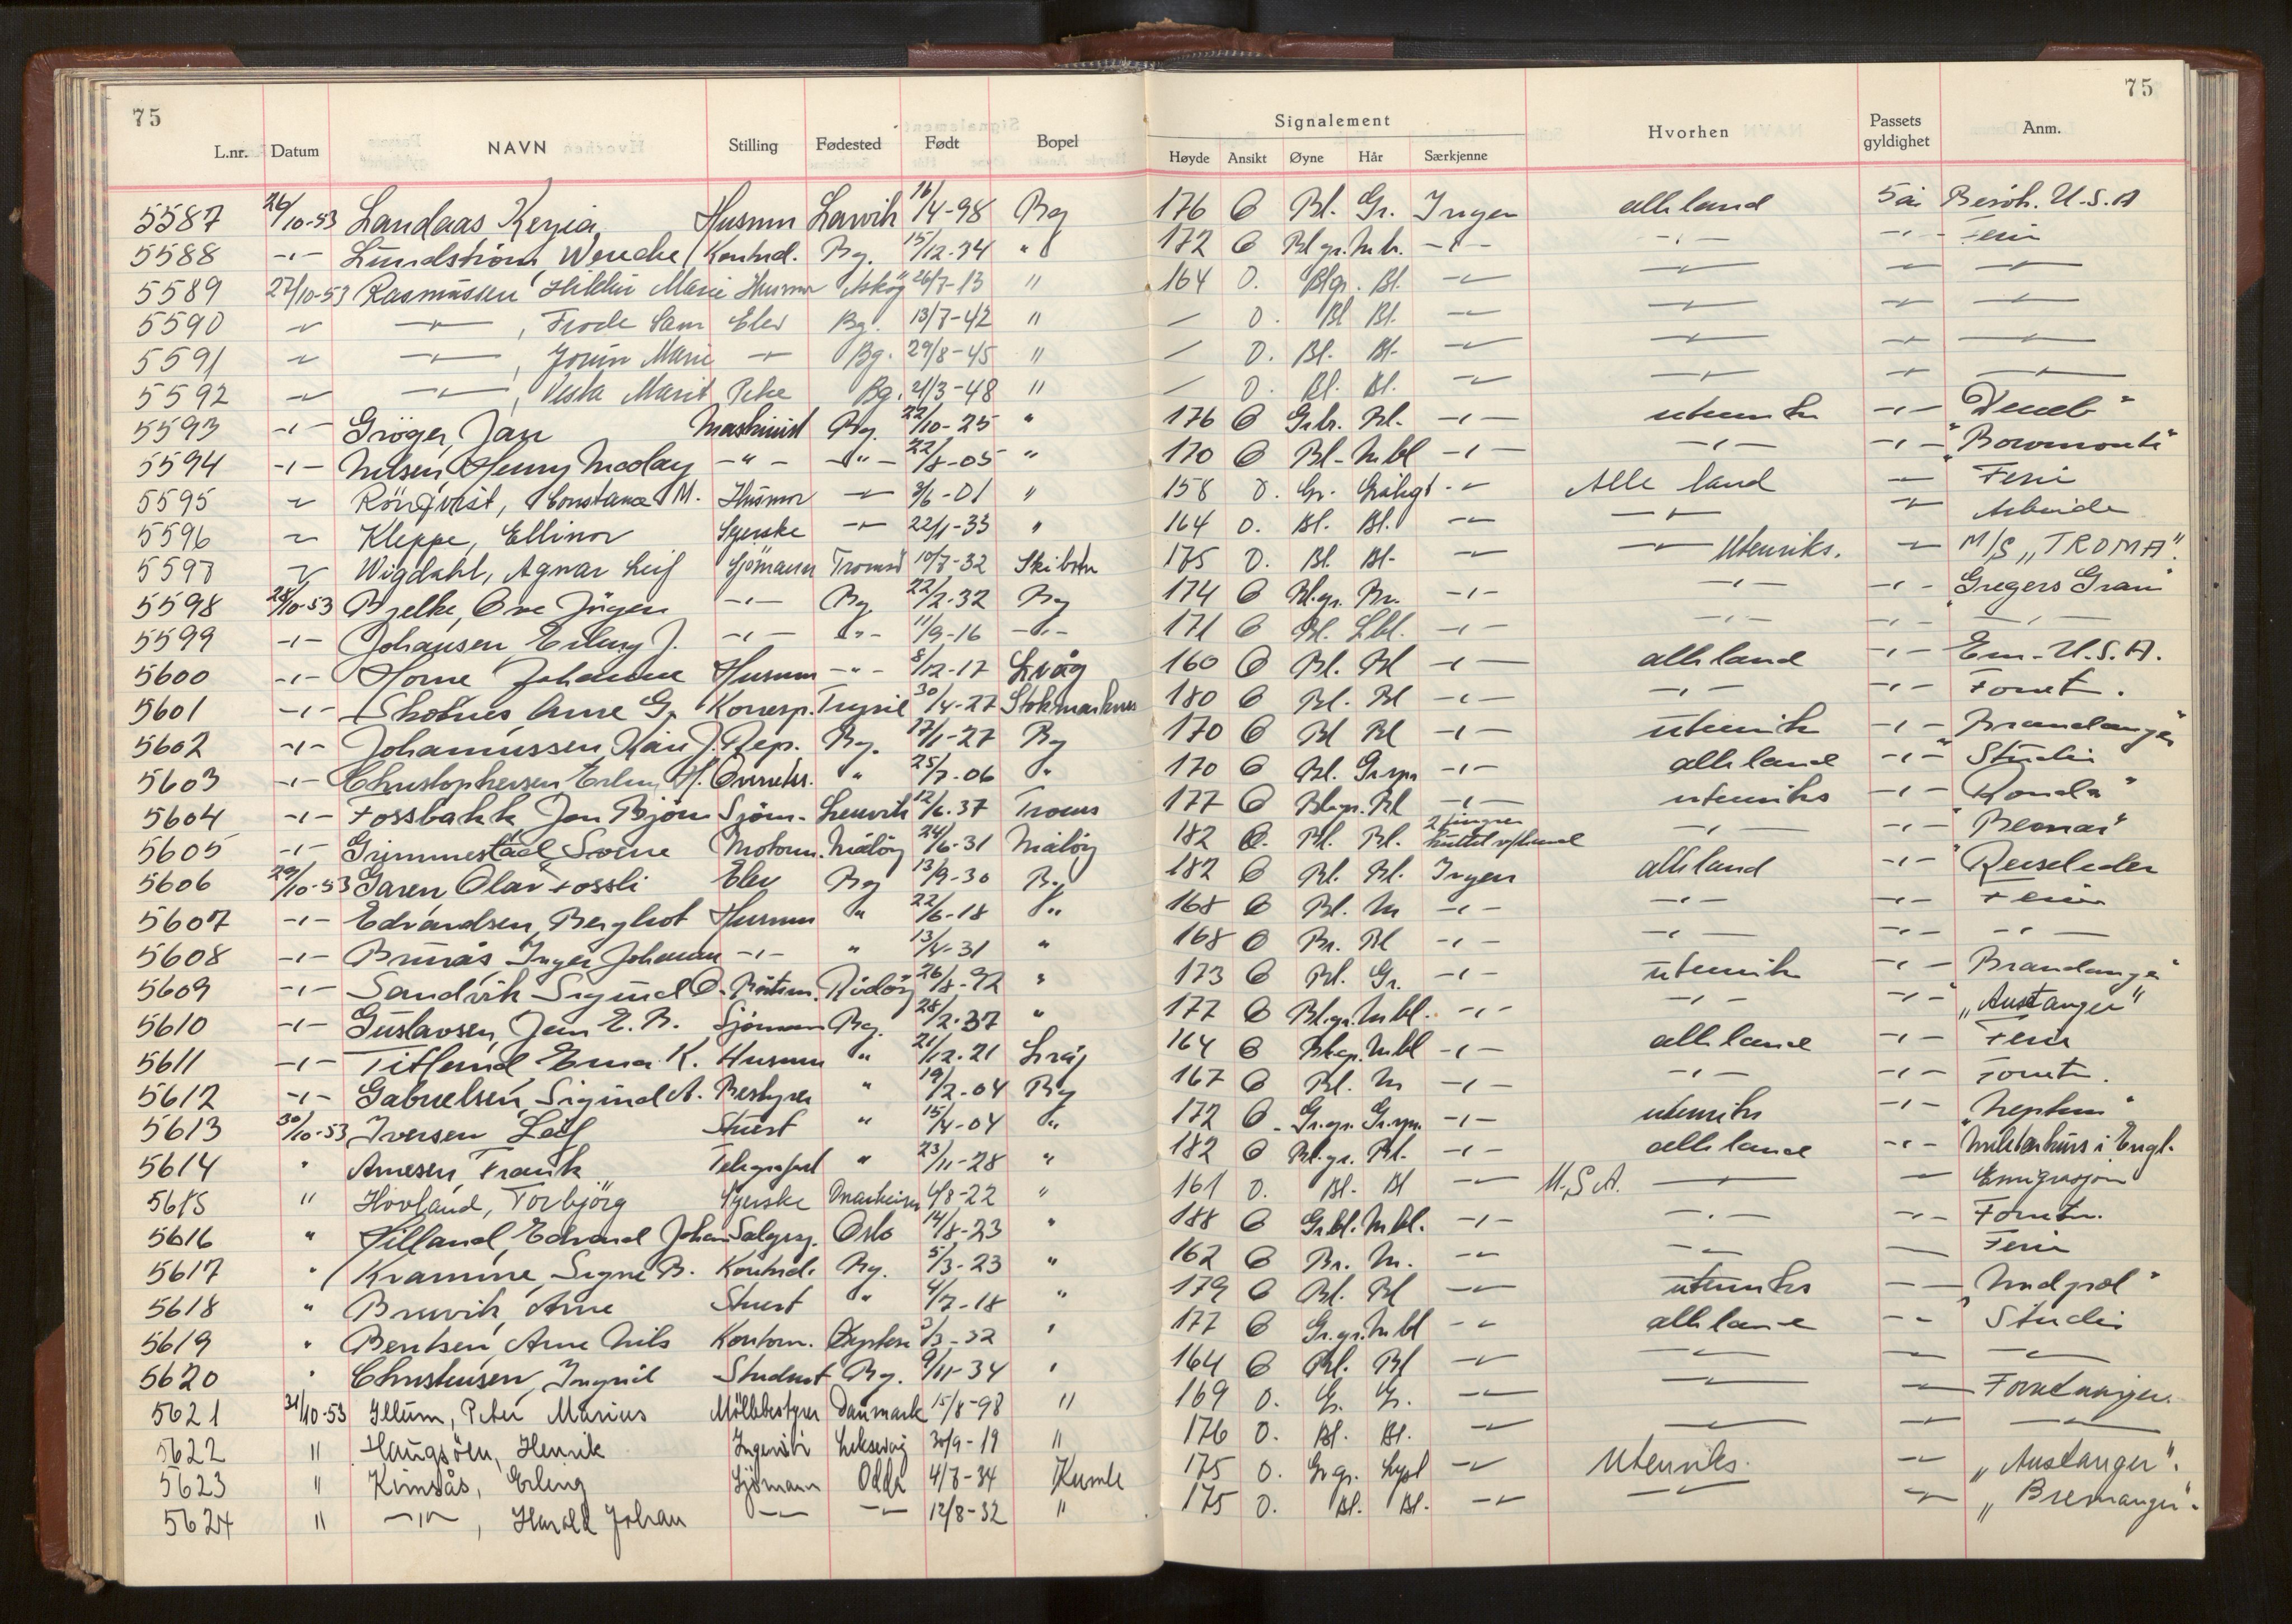 75 75
Signalement
L.nr. Datum NAVN Stilling Fødested Født Bopel Høyde Ansikt Øyne Hår Særkjenne Hvorhen Passets gyldighet Anm.
5587 26/10-53 Landaas Husmor Larvik 16/4-98 Bg 176 O Bl. Gr. Ingen alle land 5 år Besøk. U.S.A
5588 -"- Lundstrøm Wenche Kontord. Bg. 15/12-34 " 172 O Bl.gr. M.br. -"- -"- -"- Ferie
5589 27/10-53 Rasmussen Marie Husmor Askøy 26/7-13 " 164 O. Blgr. Bl. -"- -"- -"- -"-
5590 -"- -"-, Frode Sam Elev Bg. 13/7-42 " / O. Bl Bl. -"- -"- -"- -"-
5591 -"- -"-, Jorun Marie -"- Bg. 29/8-45 " / O. Bl. Bl. -"- -"- -"- -"-
5592 -"- -"-, Marit Pike Bg. 21/3-48 " / O. Bl. Bl. -"- -"- -"- -"-
5593 -"- Grøger, Jan Maskinist Bg. 22/10-25 " 176 O Gr.br. Bl. -"- utenriks -"- "Deneb"
5594 -"- Nilsen, Henry Nicolay -"- -"- 22/8-05 " 170 O Bl. M.bl -"- -"- -"-
5595 -"- Rönqvist, Constance M. Husmor -"- 3/6-01 " 158 O. Gr. -"- Alle land -"- Ferie
5596 -"- Kleppe, Ellinor Syerske -"- 22/1-33 " 164 O. Bl. Bl. -"- -"- -"- Arbeide
5597 -"- Wigdahl, Agnar Leif Sjömann Tromsö 10/7-32 Skibotn 175 O. Bl. Bl. -"- -"- Utenriks. -"- M/S „TROMA".
5598 28/10-53 Bjelke, Ove Jørgen -"- Bg 22/2-32 Bg 174 O Bl.gr. Br. -"- -"- -"- "Gregers Gram"
5599 -"- Johansen Erling J. -"- -"- 11/9-16 -"- 171 O Bl. L.bl. -"- -"- -"- -"-
5600 -"- Horne Johanne Husmor -"- 8/12-17 160 O Bl. Bl -"- alle land -"- Em. U.S.A.
5601 -"- Skotnes Arne G. Korresp. Trysil 30/4-27 Stokmarknes 180 O Bl. Bl -"- -"- -"- Forret.
5602 -"- Johannessen, Kåre J. Rep. Bg. 17/1-27 Bg 170 O Bl Bl -"- utenriks -"- "Brandanger"
5603 -"- Christophersen, Erling H. " 25/7-06 " 170 O Bl. -"- alle land -"- Studie
5604 -"- Fossbakk Jan Bjørn Sjøm. Lenvik 12/6-37 Troms 177 O Bl.gr. Bl -"- utenriks -"- "Ronda"
5605 -"- Grimmestad, Sverre Motorm. Måløy 24/6-31 Måløy 182 O. Bl. Bl. 2 fingre -"- -"-
5606 29/10-53 Garen, Olav Fossli Elev Bg 13/9-30 Bg 182 O Bl. Bl. Ingen alle land -"- Reiseleder
5607 -"- Edvardsen, Bergliot Husmor " 22/6-18 " 168 O Bl. M -"- -"- -"- Ferie
5608 -"- Brurås Inger Johanne -"- " 13/4-31 " 168 O Br. Bl -"- -"- -"- -"-
5609 -"- Sandvik Sigurd O. Båtsm. Rödöy 26/8-92 " 173 O Bl. Gr. -"- utenriks -"- "Brandanger"
5610 -"- Gustavsen, Jan E. B. Sjømann Bg. 28/2-37 " 177 O Bl.gr. M.bl. -"- -"- -"- „Austanger"
5611 -"- Titlerud Erna K. Husmor " 21/12-21 164 O Bl.gr. M.bl -"- alle land -"- Ferie
5612 -"- Gabrielsen, Sigurd A. Bestyrer " 19/2-04 Bg 167 O Bl. M -"- -"- -"- Forretn.
5613 30/10-53 Iversen Leif Stuert " 15/4-04 " 172 O Gr.gr. -"- utenriks -"- "Neptun"
5614 " Arnesen, Frank Telegrafist " 23/11-28 " 182 O Bl.gr. Bl. -"- alle land -"- Militærkurs i Engl.
5615 " Hovland, Torbjörg Syerske 4/8-22 " 161 O. Bl. Bl -"- U.S.A. -"- -"- Emigrasjon
5616 " Hilland, Edvard Johan Oslo 14/8-23 " 188 O Gr.bl. M.bl. -"- -"- -"- Forretn.
5617 " Kramme, Signe B. Kontord. Bg. 5/3-23 " 162 O Br. M. -"- -"- -"- Ferie
5618 " Bruvik, Arne Stuert " 4/7-18 " 179 O Bl. Bl -"- utenriks -"- "Nordpol"
5619 " Bentsen, Arne Nils Kontorm. 3/3-32 " 177 O Gr.gr. M.bl -"- alle land -"- Studie
5620 " Christensen, Ingrid Student Bg. 9/11-34 " 164 O Bl. Bl -"- -"- -"- -"-
5621 31/10-53 Illum, Peter Marius Möllebestyrer Danmark 15/8-98 " 169 O. G. G. -"- -"- -"- Forretninger.
5622 " Haugsöen, Henrik Ingeniör Leksvik 30/9-19 " 176 O. Bl. Bl. -"- -"- -"- -"-
5623 " Kinsås, Erling Sjömann Odda 4/7-34 175 O. Gr.gr. Lyst -"- Utenriks. -"- „Austanger".
5624 " -"-, Harald Johan -"- -"- 12/8-32 " 175 O. Bl. Bl. -"- -"- -"- „Bremanger".